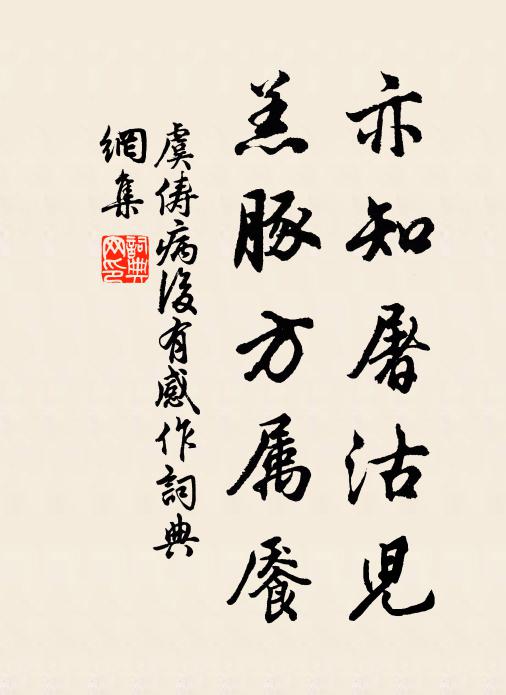 亦知屠沽児
羔豚方属餍
虞俦病後有感作詞典
網集
詞典
网印